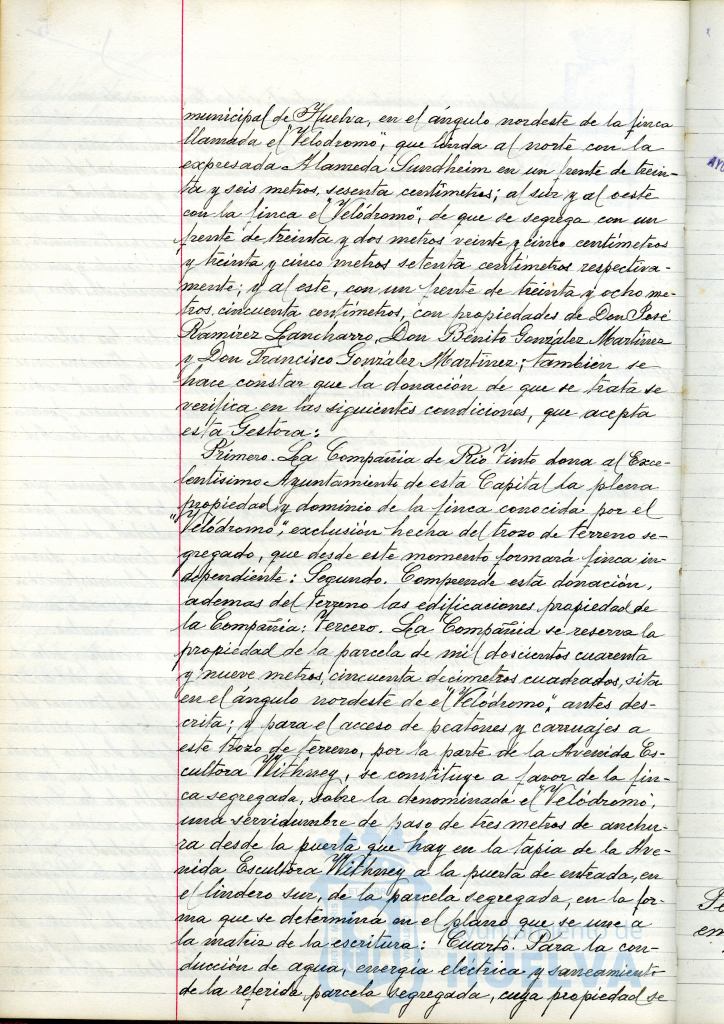 municipal de Huelva, en el ángulo nordeste de la finca
llamada el "Velodromo", que linda al norte con la
expresada Alameda Sundheim en un frente de trein-
ta y seis metros, sesenta centímetros; al sur y al oeste
con la finca el "Velódromo", de que se segrega con un
frente de treinta y dos metros veinte y cinco centímetros
y treinta y cinco metros setenta centímetros respectiva-
mente; y al este, con un frente de treinta y ocho me-
tros, cincuenta centímetros, con propiedades de Don José
Ramírez Lancharro, Don Bénito González Martínez
y Don Francisco González Martínez; también se
hace constar que la donación de que se trata se
verifica en las siguientes condiciones, que acepta
esta Gestora:
Primero. La Compañia de Rio Tinto dona al Exce-
lentísimo Ayuntamiento de esta Capital la plena
propiedad y dominio de la finca conocida por el
"Velódromo", exclusión hecha del trozo de terreno se-
gregado, que desde este momento formará finca in-
dependiente: Segundo. Comprende esta donación,
ademas del terreno las edificaciones propiedad de
la Compañia: Tercero. La Compañia se reserva la
propiedad de la parcela de mil doscientos cuarenta
y nueve metros, cincuenta decímetros cuadrados, sita
en el ángulo nordeste de el "Velódromo", antes des-
crita; y para el acceso de peatones y carruajes a
este trozo de terreno, por la parte de la Avenida Es-
cultora Withney, se constituye a favor de la fin-
ca segregada, sobre la denominada el "Velódromo",
una servidumbre de paso de tres metros de anchu-
ra desde la puerta que hay en la tapia de la Ave-
nida Escultora Withney a la puerta de entrada, en
el lindero sur, de la parcela segregada, en la for-
ma que se determina en el plano que se une
la matriz de la escritura: Cuarto. Para la con-
ducción de agua, energía eléctrica y saneamiento
de la referida parcela segregada, cuya propiedad se
Ayuntamiento de
HUELVA